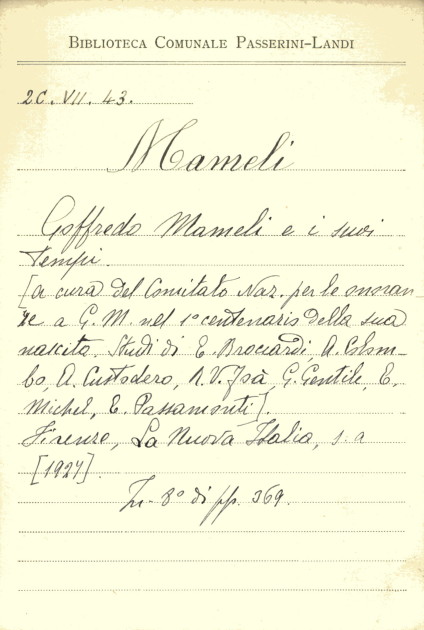 BIBLIOTECA COMUNALE PASSERINI-LANDI
2C. VII. 43.
Mameli
Goffredo Mameli e i suoi
tempi.
[a cura del Comitato Naz. per le onoran-
ze a G. M. nel 1° centenario della sua
nascita. Studi di E. Brociardi, A. Colom-
bo, A. Custodero, A. V. Isà, G. Gentile, E.
Michel, E. Passamonti].
Firenze, La Nuova Italia, s. a
[1927].
In- 8° di pp. 369.